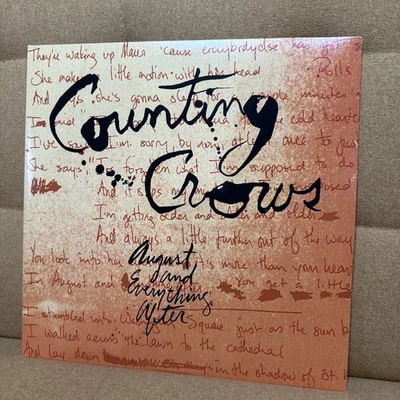 They're waking up Maria 'cause everybody else has got so
She makes a little motion with her head
Rolls
And says she's gonna sleep for a couple minutes
Counting
Crows
the cold
I've said I'm sorry by now, at least once to just
she says "I've forgotten what I'm supposed to do
And it slips my
I'm getting older and older and older
And always a little further out of the way
You look into her it is more than your heart
In August and
You get a little
August
and
Everything
After
I stumbled into Washington Square just as the sun b
I walked across the lawn to the cathedral
And lay down in the shadow of St. M